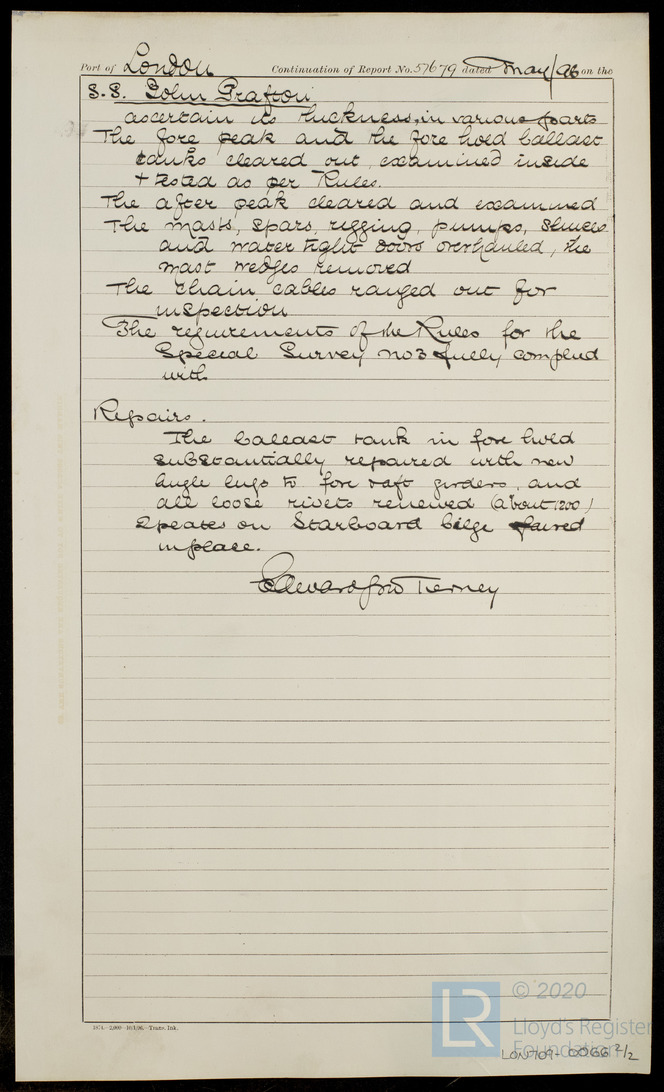 Port of London Continuation of Report No. 57679 dated May/96 on the
S.S. John Grafton
ascertain its thickness, in various parts
The fore peak and the fore hold ballast
tanks cleared out, examined inside
+ tested as per Rules.
The after peak cleared and examined
The masts, spars, rigging, pumps, sluices
and water tight doors overhauled, the
mast wedges removed
The chain cables ranged out for
inspection
The requirements of the Rules for the
Special Survey no 3 fully complied
with
Repairs.
The ballast tank in fore hold
substantially repaired with new
angle lugs to fore & aft girders, and
all loose rivets renewed (about 1200)
2 plates on Starboard bilge faired
in place.
Tierney
1871.—2,000—
Transf. Ink.
© 2020
LR
Lloyd's Register
Foundation
LON709-0066 2/2